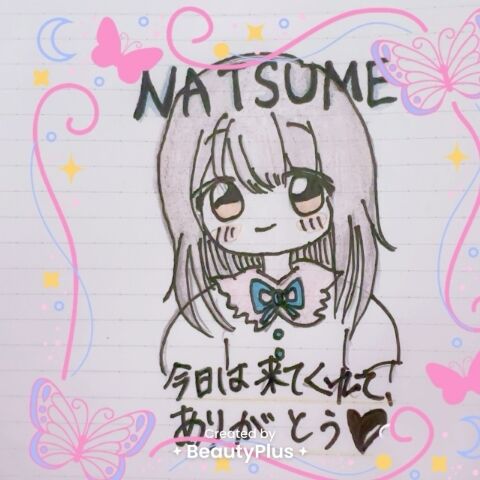 NATSUME
今日は来てくれて、
ありがとう♥
Created by
BeautyPlus